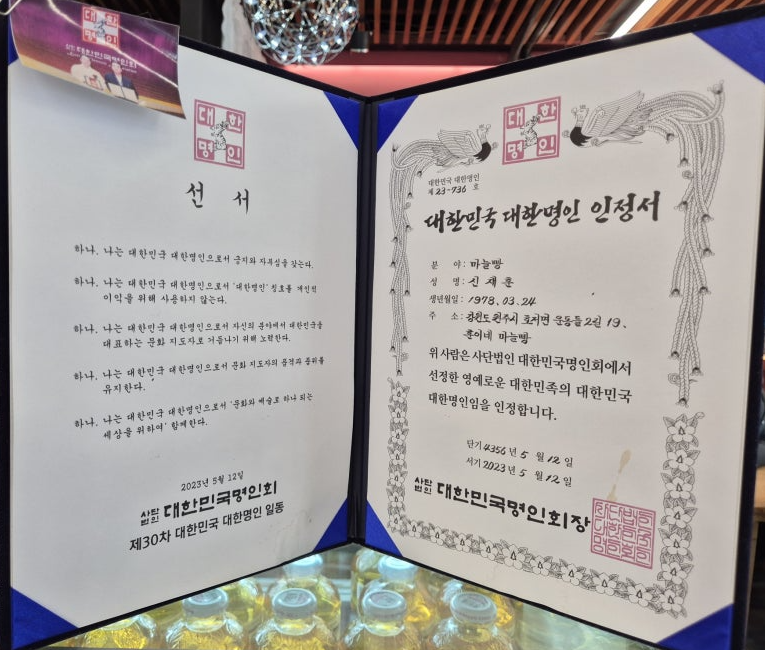 대한
명인
대한민국명인회
대한
명인
선 서
하나. 나는 대한민국 대한명인으로서 긍지와 자부심을 갖는다.
하나. 나는 대한민국 대한명인으로서 '대한명인' 칭호를 개인적
이익을 위해 사용하지 않는다.
하나. 나는 대한민국 대한명인으로서 자신의 분야에서 대한민국을
대표하는 문화 지도자로 거듭나기 위해 노력한다.
하나. 나는 대한민국 대한명인으로서 문화 지도자의 품격과 품위를
유지한다.
하나. 나는 대한민국 대한명인으로서 '문화와 예술로 하나 되는
세상을 위하여' 함께한다.
2023년 5월 12일
사단법인 대한민국명인회
제30차 대한민국 대한명인 일동
대한
명인
대한민국 대한명인
제 23-736 호
대한민국 대한명인 인정서
분 야: 마늘빵
성 명: 신재훈
생년월일: 1978. 03. 24
주 소: 강원도 원주시 호저면 운동들2길 19,
훈이네 마늘빵
위 사람은 사단법인 대한민국명인회에서
선정한 영예로운 대한민족의 대한민국
대한명인임을 인정합니다.
단기 4356년 5 월 12 일
서기 2023년 5 월 12 일
사단법인 대한민국명인회장